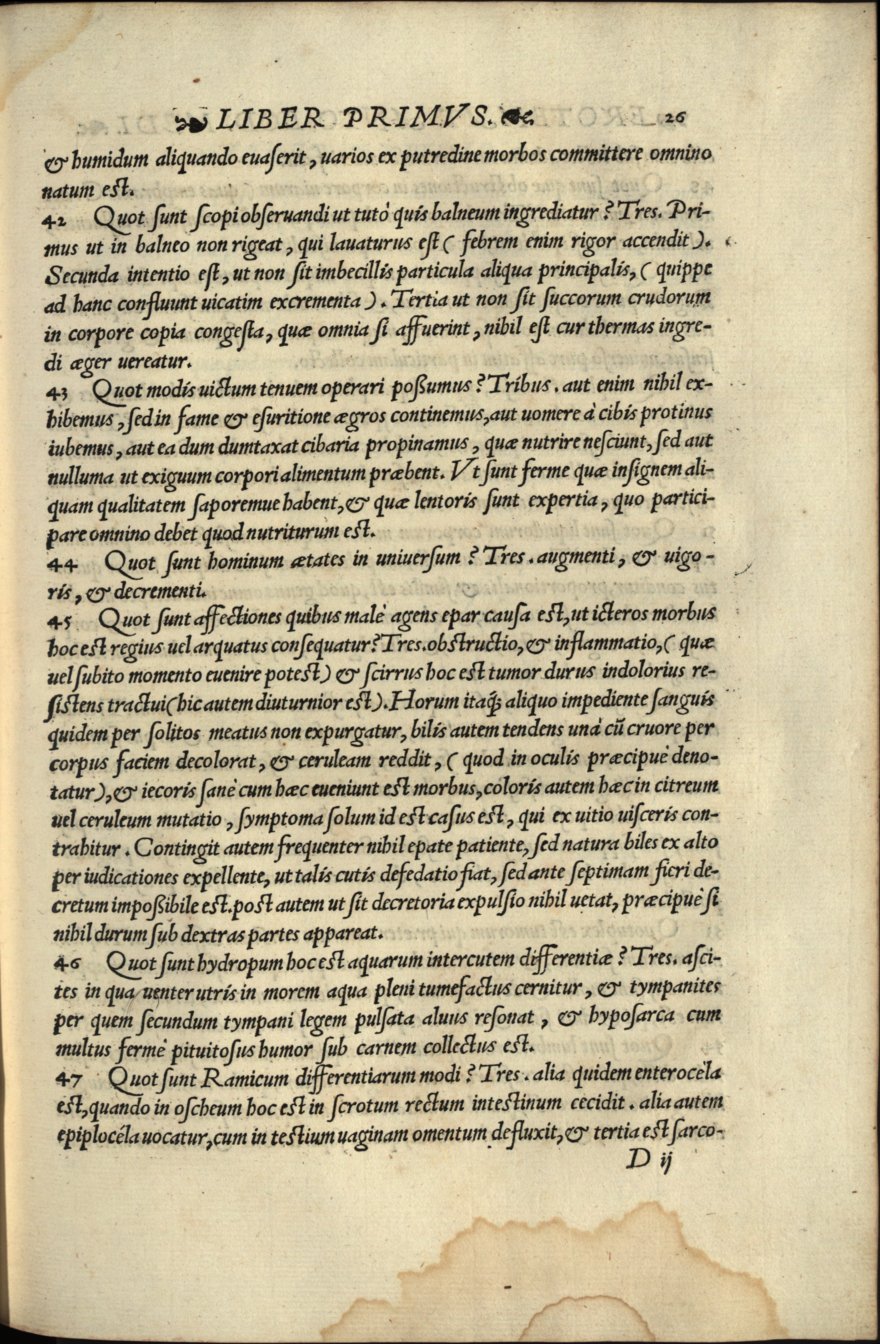 LIBER PRIMVS. 26
& humidum aliquando euaserit, uarios ex putredine morbos committere omnino
natum est.
42 Quot sunt scopi obseruandi ut tutò quis balneum ingrediatur? Tres. Pri-
mus ut in balneo non rigeat, qui lauaturus est (febrem enim rigor accendit).
Secunda intentio est, ut non sit imbecillis particula aliqua principalis, (quippe
ad hanc confluunt uicatim excrementa). Tertia ut non sit succorum crudorum
in corpore copia congesta, quæ omnia si affuerint, nihil est cur thermas ingre-
di æger uereatur.
43 Quot modis uictum tenuem operari poßumus? Tribus. aut enim nihil ex-
hibemus, sed in fame & esuritione ægros continemus, aut uomere à cibis protinus
iubemus, aut ea dum dumtaxat cibaria propinamus, quæ nutrire nesciunt, sed aut
nulluma ut exiguum corpori alimentum præbent. Vt sunt ferme quæ insignem ali-
quam qualitatem saporemue habent, & quæ lentoris sunt expertia, quo partici-
pare omnino debet quod nutriturum est.
44 Quot sunt hominum ætates in uniuersum? Tres. augmenti, & uigo-
ris, & decrementi.
45 Quot sunt affectiones quibus malè agens epar causa est, ut icteros morbus
hoc est regius uel arquatus consequatur? Tres. obstructio, & inflammatio, (quæ
uel subito momento euenire potest) & scirrus hoc est tumor durus indolorius re-
sistens tractui (hic autem diuturnior est). Horum itaq; aliquo impediente sanguis
quidem per solitos meatus non expurgatur, bilis autem tendens unà cū cruore per
corpus faciem decolorat, & ceruleam reddit, (quod in oculis præcipuè deno-
tatur), & iecoris sanè cum hæc eueniunt est morbus, coloris autem hæc in citreum
uel ceruleum mutatio, symptoma solum id est casus est, qui ex uitio uisceris con-
trahitur. Contingit autem frequenter nihil epate patiente, sed natura biles ex alto
per iudicationes expellente, ut talis cutis defedatio fiat, sed ante septimam fieri de-
cretum impoßibile est. post autem ut sit decretoria expulsio nihil uetat, præcipuè si
nihil durum sub dextras partes appareat.
46 Quot sunt hydropum hoc est aquarum intercutem differentiæ? Tres. asci-
tes in qua uenter utris in morem aqua pleni tumefactus cernitur, & tympanites
per quem secundum tympani legem pulsata aluus resonat, & hyposarca cum
multus fermè pituitosus humor sub carnem collectus est.
47 Quot sunt Ramicum differentiarum modi? Tres. alia quidem enterocéla
est, quando in oscheum hoc est in scrotum rectum intestinum cecidit. alia autem
epiplocéla uocatur, cum in testium uaginam omentum defluxit, & tertia est sarco-
D ij